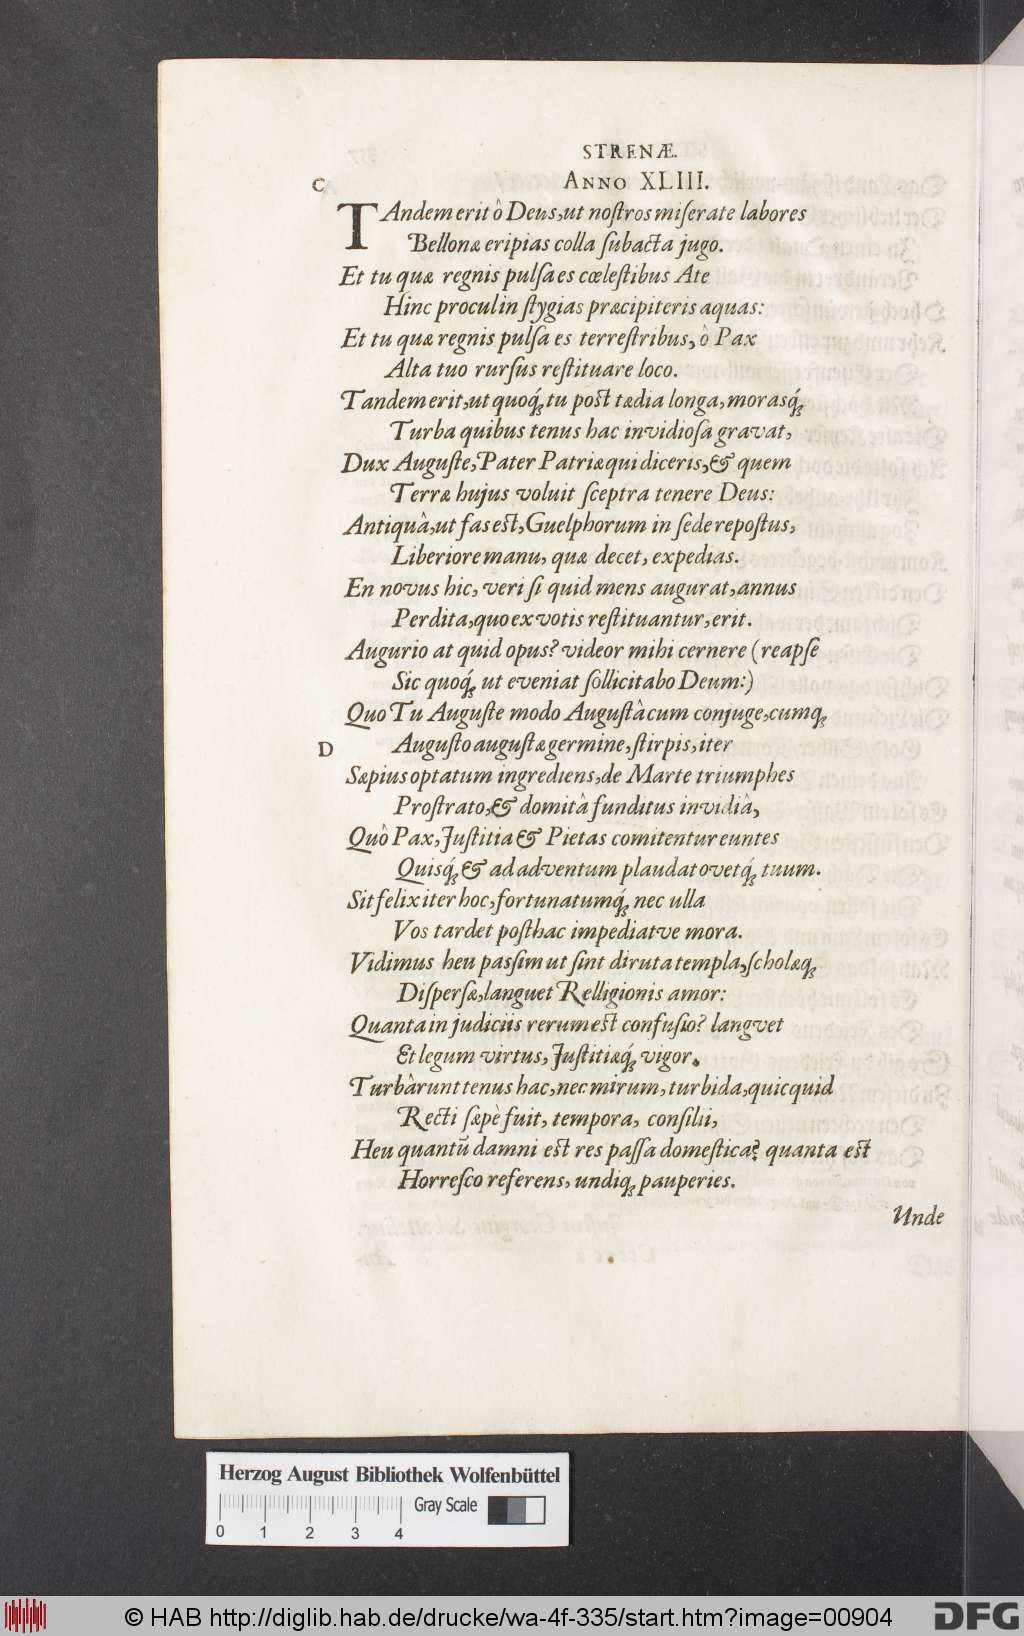 STRENÆ.
C
ANNO XLIII.
TAndem erit ô Deus, ut noſtros miſerate labores
Bellonæ eripias colla ſubacta jugo.
Et tu quæ regnis pulſa es cœleſtibus Ate
Hinc procul in ſtygias præcipiteris aquas:
Et tu quæ regnis pulſa es terreſtribus, ò Pax
Alta tuo rurſus reſtituare loco.
Tandem erit, ut quoq́; tu poſt tædia longa, morasq́;
Turba quibus tenus hac invidioſa gravat,
Dux Auguſte, Pater Patriæ qui diceris, & quem
Terræ hujus voluit ſceptra tenere Deus:
Antiquâ, ut fas eſt, Guelphorum in ſede repoſtus,
Liberiore manu, quæ decet, expedias.
En novus hic, veri ſi quid mens augurat, annus
Perdita, quo ex votis reſtituantur, erit.
Augurio at quid opus? videor mihi cernere (reapſe
Sic quoq́; ut eveniat ſollicitabo Deum:)
Quo Tu Auguſte modo Auguſtâ cum conjuge, cumq;
D
Auguſto auguſtæ germine, ſtirpis, iter
Sæpius optatum ingrediens, de Marte triumphes
Proſtrato, & domitâ funditus invidiâ,
Quò Pax, Juſtitia & Pietas comitentur euntes
Quisq́; & ad adventum plaudat ovetq́; tuum.
Sit felix iter hoc, fortunatumq́; nec ulla
Vos tardet poſthac impediatve mora.
Vidimus heu paſsim ut ſint diruta templa, ſcholæq;
Diſperſæ, languet Relligionis amor:
Quanta in judiciis rerum eſt confuſio? langvet
Et legum virtus, Juſtitiæq́; vigor.
Turbârunt tenus hac, nec mirum, turbida, quicquid
Recti ſæpè fuit, tempora, conſilii,
Heu quantũ damni eſt res paſſa domeſtica? quanta eſt
Horreſco referens, undiq; pauperies.
Unde
Herzog August Bibliothek Wolfenbüttel
Gray Scale
0 1 2 3 4
© HAB http://diglib.hab.de/drucke/wa-4f-335/start.htm?image=00904
DFG